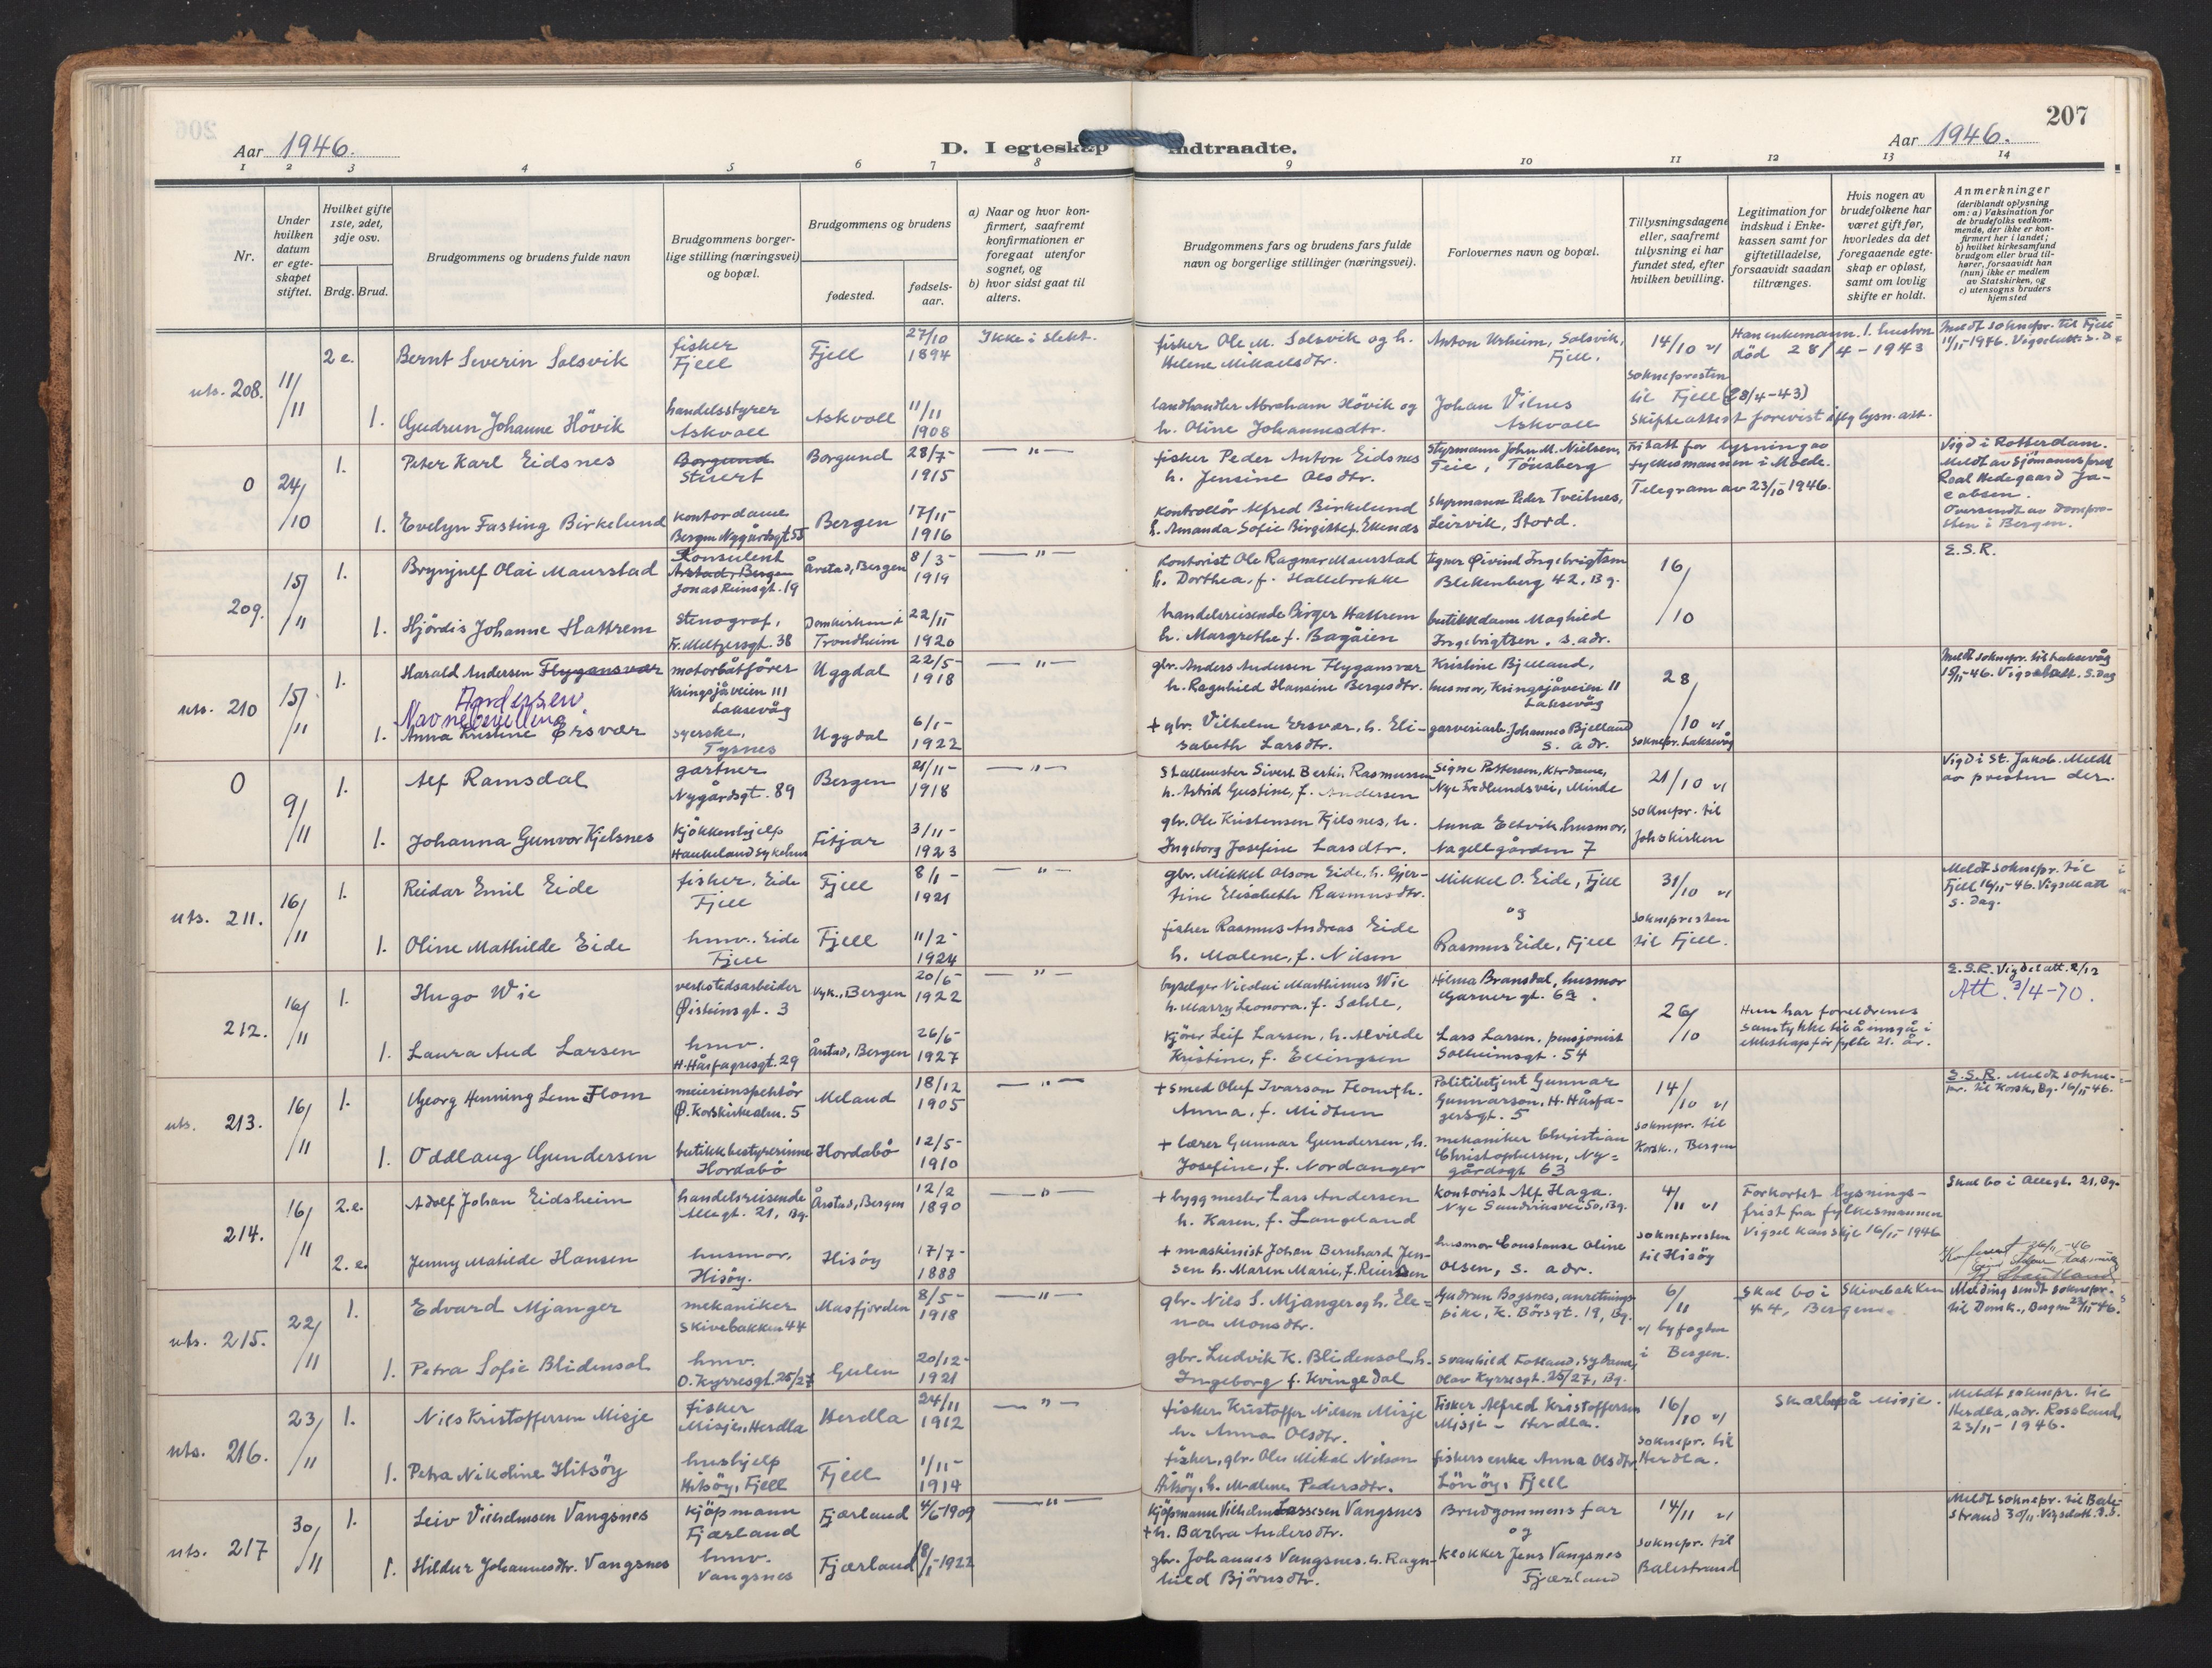 207
Aar 1946.
D. I egteskap indtraadte.
Aar 1946.
1 2 3 4 5 6 7 8 9 10 11 12 13 14
Nr.
Under hvilken datum er egteskapet stiftet.
Hvilket gifte 1ste, 2det, 3dje osv.
Brdg. Brud.
Brudgommens og brudens fulde navn
Brudgommens borgerlige stilling (næringsvei) og bopæl.
Brudgommens og brudens
fødested.
fødselsaar.
a) Naar og hvor konfirmert, saafremt konfirmationen er foregaat utenfor sognet, og
b) hvor sidst gaat til alters.
Brudgommens fars og brudens fars fulde navn og borgerlige stillinger (næringsvei).
Forlovernes navn og bopæl.
Tillysningsdagene eller, saafremt tillysning ei har fundet sted, efter hvilken bevilling.
Legitimation for indskud i Enkekassen samt for giftetilladelse, forsaavidt saadan tiltrænges.
Hvis nogen av brudefolkene har været gift før, hvorledes da det foregaaende egteskap er opløst, samt om lovlig skifte er holdt.
Anmerkninger
(deriblandt oplysning om: a) Vaksination for de brudefolks vedkommende, der ikke er konfirmert her i landet;
b) hvilket kirkesamfund brudgom eller brud tilhører, forsaavidt han (hun) ikke er medlem av Statskirken, og
c) utensogns bruders hjemsted
uts. 208. 11/11
2 e. Bernt Severin Solsvik fisker Fjell Fjell 27/10 1894 Ikke i slekt.
fisker Ole M. Solsvik og h. Helene Mikaelsdtr. Anton Urheim, Solsvik, Fjell. 14/10 v/ soknepresten til Fjell
Han enkemann. 1. hustru død 28/4-1943 (28/4-43)
Meldt soknepr. til Fjell 11/11-1946. Vigselatt. s. D
1. Gudrun Johanne Hövik handelsstyrer Askvoll Askvoll 11/11 1908
landhandler Abraham Hövik og h. Oline Johannesdtr. Johan Vilnes Askvoll
Skifteattest forevist iflg lysn. att.
0 24/10
1. Peter Karl Eidsnes Borgund Stuert Borgund 28/7- 1915 — " —
fisker Peder Anton Eidsnes h. Jensine Olsdtr. Styrmann John M. Nielsen, Teie, Tönsberg
Fritatt for lysning av fylkesmannen i Molde. Telegram av 23/10-1946.
Vigd i Rotterdam. Meldt av Sjömannsprest Roal Hedegaard Jacobsen. Oversendt av domprosten i Bergen.
1. Evelyn Fasting Birkelund Kontordame Bergen Nygårdsgt 55 Bergen 17/11- 1916
Kontrollör Alfred Birkelund h. Amanda Sofie Birgitte f. Ekenæs Styrmann Peder Tveitnes, Leirvik, Stord.
209. 15/11
1. Brynjulf Olai Maurstad Konsulent Årstad, Bergen Jonas Reinsgt. 19 Årstad, Bergen 8/3- 1919 — " —
Kontorist Ole Ragnar Maurstad h. Dorthea, f. Hallebrekke tegner Øivind Ingebrigtsen Blekenberg 42, Bg. 16/10
E.S.R.
1. Hjördis Johanne Hattrem Stenograf, Fr. Meltzersgt. 38 Domkirken i Trondheim 22/11 1920
handelsreisende Birger Hattrem h. Margrethe f. Bagåien butikkdame Maghild Ingebrigtsen. s. adr.
uts. 210 15/11
1. Harald Andersen Flygansvær motorbåtförer Kringsjåveien 111 Laksevåg Uggdal 22/5- 1918 — " —
Andersen. Navnebevilling
gbr. Anders Andersen Flygansvær h. Ragnhild Hansine Bergesdtr. Kristine Bjelland, husmor, Kringsjåveien 11 Laksevåg 28/10 v/ soknepr. Laksevåg
Meldt soknepr. til Laksevåg 15/11-46. Vigselatt. s. dag
1. Anna Kristine Ersvær syerske, Tysnes Uggdal 6/1- 1922
+ gbr. Vilhelm Ersvær, h. Elisabeth Larsdtr. garveriarb. Johannes Bjelland s. adr.
0 9/11
1. Alf Ramsdal gartner Nygårdsgt. 89 Bergen 21/11- 1918 — " —
Stallmester Sivert Bertin Rasmussen h. Astrid Gustine, f. Andersen Signe Pettersen, Ktrdame, Nye Fredlundsvei, Minde 21/10 v/ soknepr. til Johskirken
Vigd i St. Jakob. Meldt av presten der.
1. Johanna Gunvor Kjelsnes Kjökkenhjelp Haukeland Sykehus Fitjar 3/11- 1923
gbr. Ole Kristensen Kjelsnes, h. Ingeborg Josefine Larsdtr. Anna Eltvik, husmor, Nagellgården 7
uts. 211. 16/11
1. Reidar Emil Eide fisher. Eide Fjell Fjell 8/1- 1921 — " —
gbr. Mikkel Olson Eide, h. Gjertine Elisabeth Rasmusdtr. Mikkel O. Eide, Fjell og 31/10 v/ soknepresten til Fjell.
Meldt soknepr. til Fjell 16/11-46. Vigselatt s. dag.
1. Oline Mathilde Eide hmv. Eide Fjell Fjell 11/2- 1924
fisker Rasmus Andreas Eide h. Malene, f. Nilsen Rasmus Eide, Fjell
212. 16/11
1. Hugo Wie verkstedsarbeider Øisteinsgt. 3 Nyk., Bergen 20/6- 1922 — " —
byselger Nicolai Marthinus Wie h. Marry Leonora, f. Sæhle, Hilma Bransdal, husmor Garvergt. 6a. 26/10
Hun har foreldrenes samtykke til å inngå i ekteskap för fylte 21. år.
E.S.R. Vigselatt. 2/12 Att. 3/4-70.
1. Laura Aud Larsen hmv. H. Hårfagresgt. 29 Årstad, Bergen 26/5- 1927
Kjörer Leif Larsen, h. Alvilde Kristine, f. Ellingsen Lars Larsen, pensjonist Solheimsgt. 54
uts. 213. 16/11
1. Georg Henning Lem Flom meieriinspektör Ø. Korskirkealm. 5 Meland 18/12 1905 — " —
+ smed Oluf Ivarson Flom + h. Anna, f. Midtun Politibetjent Gunnar Gunnarson, H. Hårfagersgt. 5 14/10 v/ soknepr. til Korsk., Bergen
E.S.R. Meldt soknepr. til Korsk, Bg. 16/11-46.
1. Oddlaug Gundersen butikkbestyrerinne Hordabö Hordabö 12/5- 1910
+ lærer Gunnar Gundersen, h. Josefine, f. Nordanger mekaniker Christian Christophersen, Nygårdsgt 63
214. 16/11
2.e. Adolf Johan Eidsheim handelsreisende Allegt. 21, Bg. Årstad, Bergen 12/2 1890 — " —
+ byggmester Lars Andersen h. Karen, f. Langeland Kontorist Alf Haga. Nye Sandviksvei 50, Bg. 4/11 v/ soknepresten til Hisöy
Forkortet lysningsfrist fra fylkesmannen Vigsel kan skje 16/11-1946
Skal bo i Allegt. 21, Bg.
2.e. Jenny Matilde Hansen husmor, Hisöy. Hisöy 17/7- 1888
+ maskinist Johan Bernhard Jensen h. Maren Marie, f. Reiersen husmor Constanse Oline Olsen, s. adr.
Konferert 26/11-46
uts. 215. 22/11
1. Edvard Mjanger mekaniker Skivebakken 44 Masfjorden 8/5- 1918 — " —
gbr. Nils S. Mjanger og h. Elena Monsdtr. Gudrun Bogsnes, anretningspike, K. Börsgt. 19, Bg. 6/11 v/ byfogden i Bergen.
Skal bo i Skivebakken 44, Bergen.
Melding sendt soknepr. til Domk., Bergen 23/11-46.
1. Petra Sofie Blidensol hmv. O. Kyrresgt. 25/27 Gulen 20/12- 1921
gbr. Ludvik K. Blidensol, h. Ingeborg f. Kvingedal Svanhild Folland, Sydame, Olav Kyrresgt. 25/27, Bg.
uts. 216. 23/11
1. Nils Kristoffersen Misje fisker Misje, Herdla Herdla 24/11 1912 — " —
fisker Kristoffer Nilsen Misje h. Anna Olsdtr. Fisker Alfred Kristoffersen Misje - Herdla. 16/10 v/ soknepr. til Herdla.
Skal bo på Misje.
Meldt soknepr. til Herdla, adr. Rossland, 23/11-1946.
1. Petra Nikoline Hitsöy hushjelp Hitsöy, Fjell Fjell 1/11- 1914
fisker, gbr. Ole Mikal Nilson h. Malene Pedersdtr. fiskers enke Anna Olsdtr. Lönöy, Fjell
uts. 217 30/11
1. Leiv Vilhelmsen Vangsnes Kjöpmann Fjærland Fjærland 4/6-1909 — " —
Kjöpmann Vilhelm Lassesen Vangsnes + h. Barbra Andersdtr. Brudgommens far og 14/11 v/ soknepr. til Balestrand
Meldt soknepr. til Balestrand 30/11. Vigselatt. s.d.
1. Hildur Johannesdtr. Vangsnes hmv. Vangsnes Fjærland 18/1-1922
gbr. Johannes Vangsnes. h. Ragnhild Björnsdtr. Klokker Jens Vangsnes Fjærland